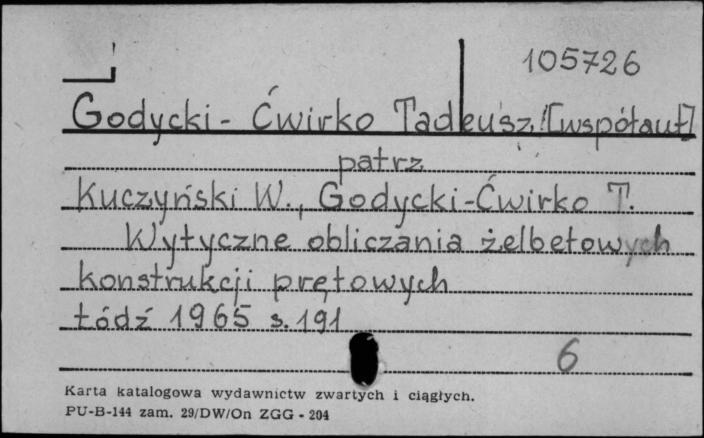 105726
Godycki-Ćwirko Tadeusz [współaut]
patrz
Kuczyński W., Godycki-Ćwirko T.
Wytyczne obliczania żelbetowych
konstrukcji prętowych
Łódź 1965 s.191
6
Karta katalogowa wydawnictw zwartych i ciągłych.
PU-B-144 zam. 29/DW/On ZGG - 204